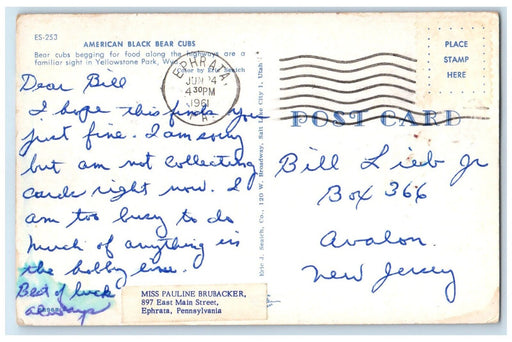 ES-253
AMERICAN BLACK BEAR CUBS
Bear cubs begging for food along the highways are a
familiar sight in Yellowstone Park, Wyo.
Color by Eric Seaich
EPHRATA,
JUN 4
4 30 PM
1961
PA.
PLACE
STAMP
HERE
POST CARD
Dear Bill
I hope this finds you
just fine. I am sorry
but am not collecting
cards right now. I
am too busy to do
much of anything in
the hobby line.
Best of luck
always
MISS PAULINE BRUBACKER,
897 East Main Street,
Ephrata, Pennsylvania
Eric J. Seaich, Co., 120 W. Broadway, Salt Lake City 1, Utah
Bill Lieb Jr
Box 366
Avalon.
New Jersey